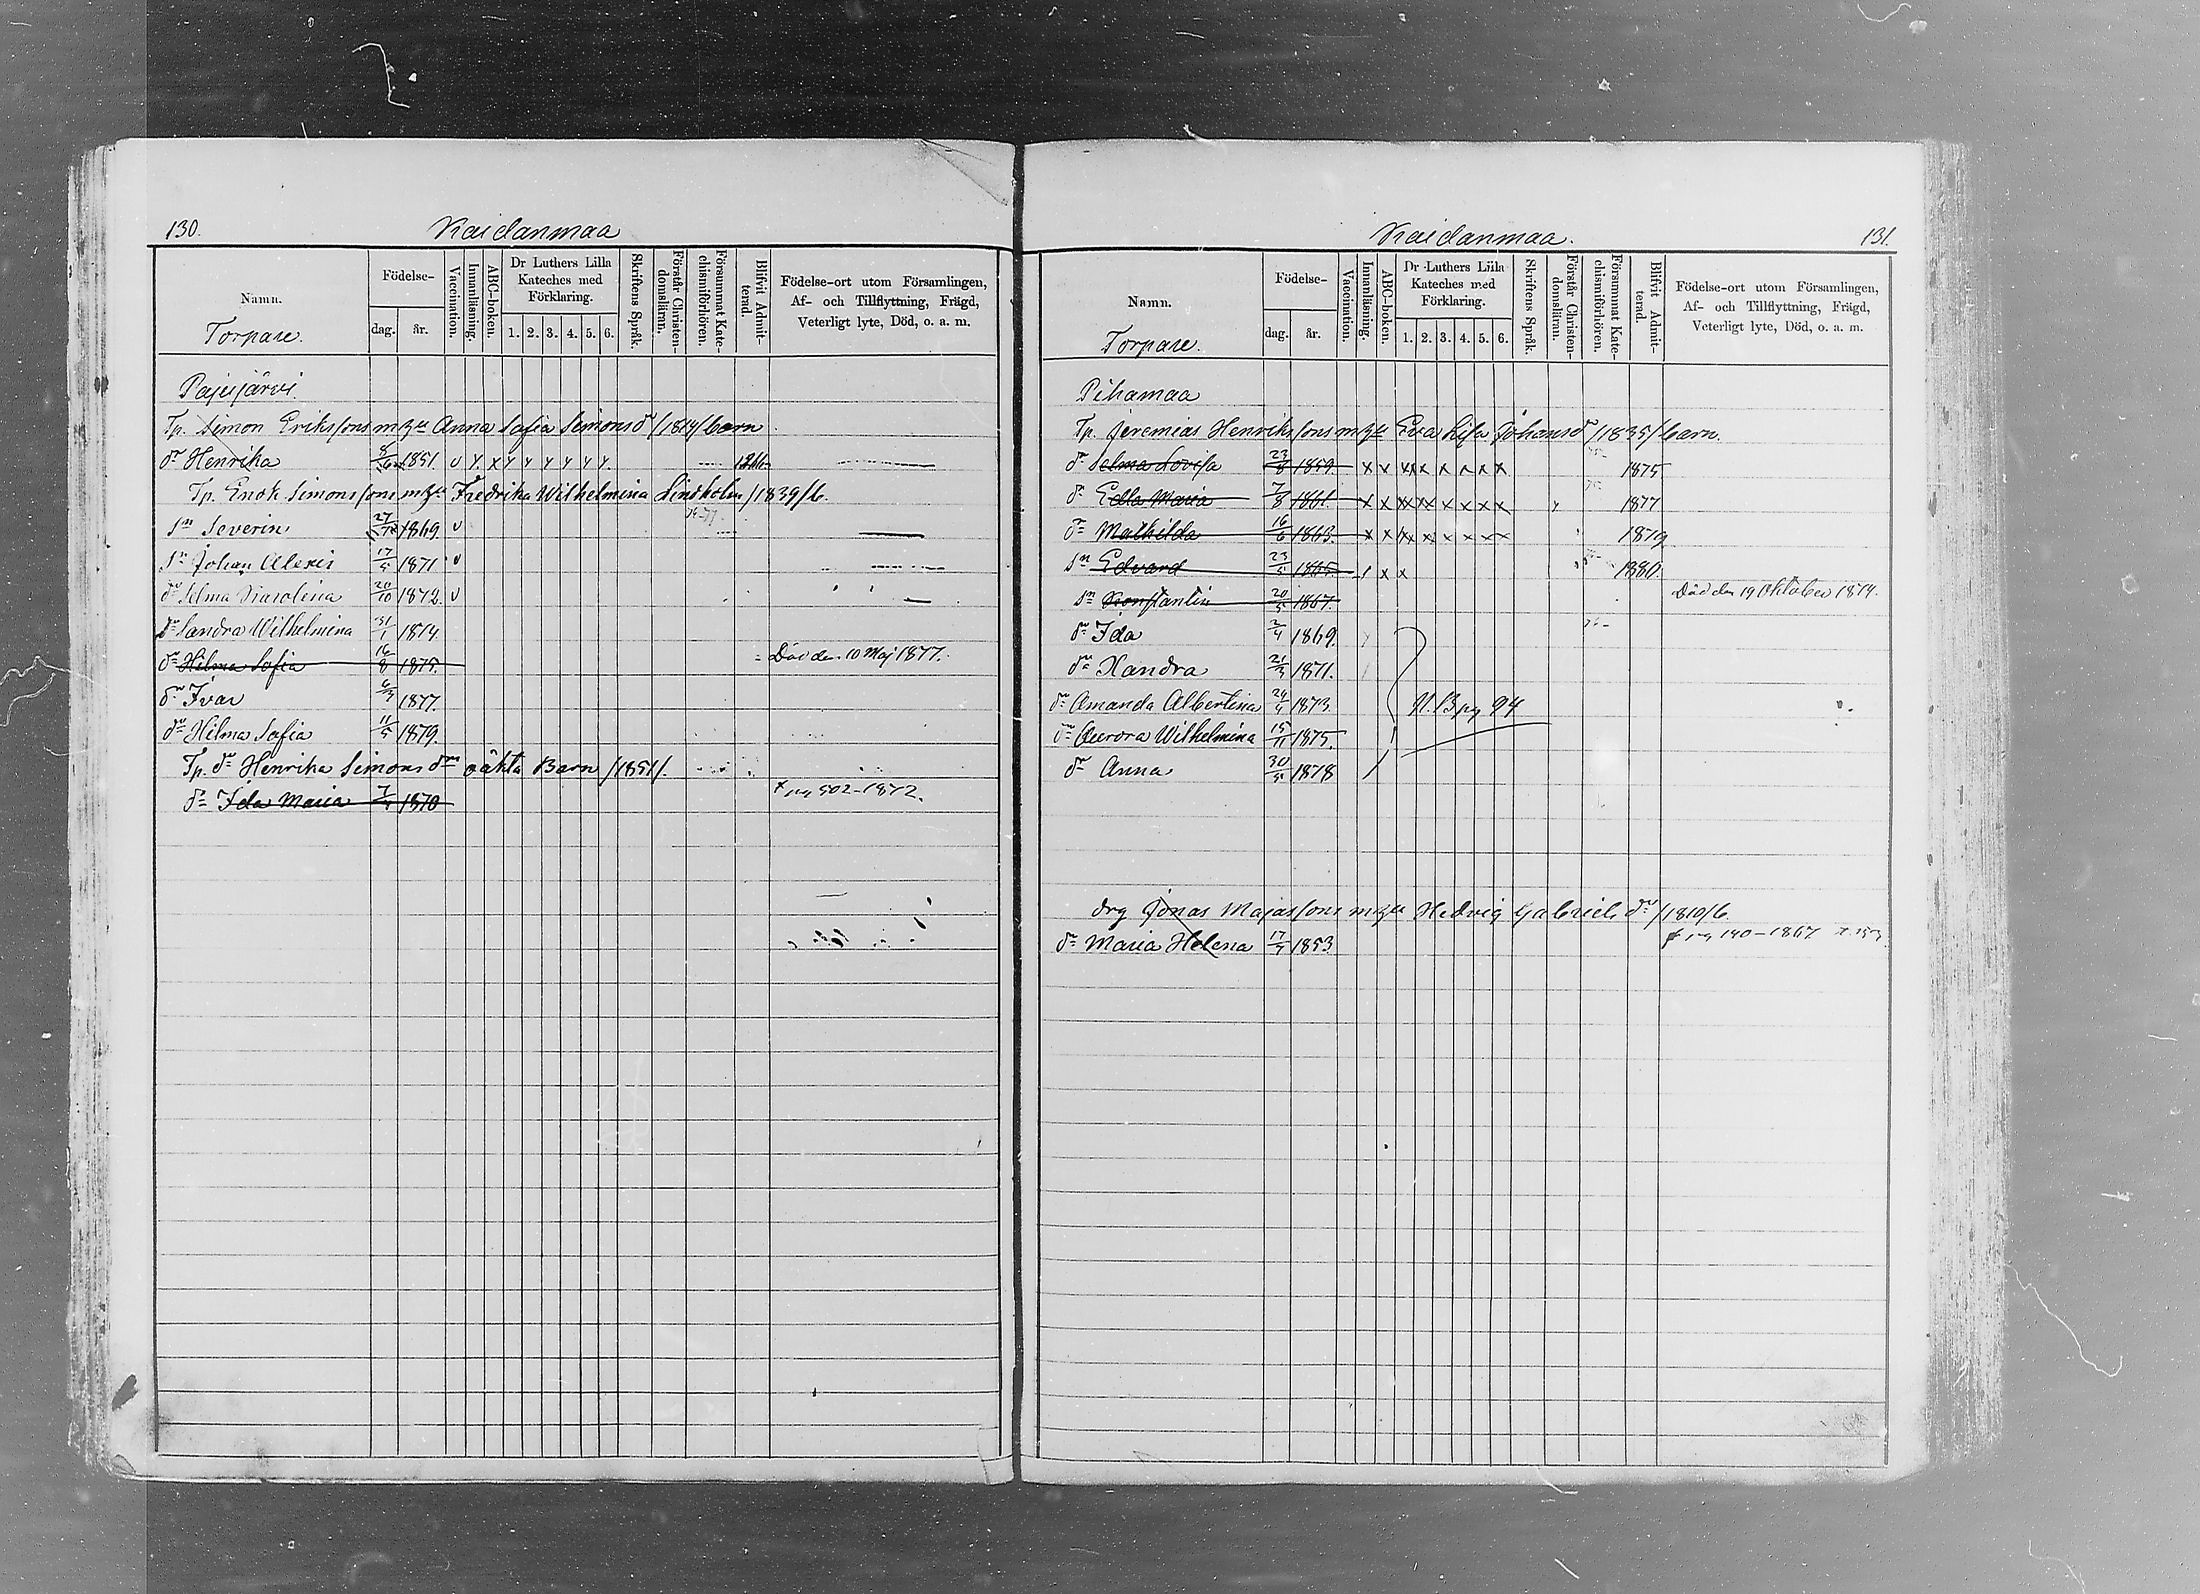 130. Kaidanmaa
Namn. Födelse- Vaccination. Innanläsning. ABC-boken. Dr Luthers Lilla Kateches med Förklaring. Skriftens Språk. Förstår Christendomsläran. Försummat Katechismiförhören. Blifvit Admitterad. Födelse-ort utom Församlingen, Af- och Tillflyttning, Frägd, Veterligt lyte, Död, o. a. m.
Torpare. dag. år. 1. 2. 3. 4. 5. 6.
Pajujärvi.
Tp. Simon Erikssons m hu Anna Sofia Simonsdr /1814/ barn
dr Henrika 8/6 1851. v
Tp. Enok Simonssons m hu Fredrika Wilhelmina Lindholm /1839/ b.
sn Severin 1869. v
sn Johan Alexis 17/5 1871 v
dr Selma Karolina 20/10 1872. v
dr Sandra Wilhelmina 31/1 1874.
dr Hilma Sofia 16/8 1875. Död den 10 Maj 1877.
Ivar 1877.
dr Hilma Sofia 11/5 1879.
Tp. dr Henrika Simonsdrs oäkta Barn /1851/.
dr Ida Maria 1870 pg 502-1872.
Kaidanmaa. 131.
Namn. Födelse- Vaccination. Innanläsning. ABC-boken. Dr Luthers Lilla Kateches med Förklaring. Skriftens Språk. Förstår Christendomsläran. Försummat Katechismiförhören. Blifvit Admitterad. Födelse-ort utom Församlingen, Af- och Tillflyttning, Frägd, Veterligt lyte, Död, o. a. m.
Torpare. dag. år. 1. 2. 3. 4. 5. 6.
Pihamaa
Tp. Jeremias Henrikssons m hu Eva Lisa Johansdr /1835/ barn.
dr Selma Lovisa 23/8 1859. x x x x x x x x 1875
dr Edla Maria 7/8 1861. x x x x x x x x 1877
dr Mathilda 16/6 1863. x x x x x x x x 1879
sn Edvard 23/5 1865. x x 1880.
sn Konstantin 20/5 1867. Död den 19 Oktober 1874.
dr Ida 2/4 1869.
dr Xandra 21/3 1871.
dr Amanda Albertina 24/4 1873 N. B pg 94
dr Aurora Wilhelmina 15/11 1875.
dr Anna 30/5 1878
drg Jonas Majassons m hu Hedvig Gabrielsdr /1810/ b.
dr Maria Helena 17/7 1853 pg 140-1867